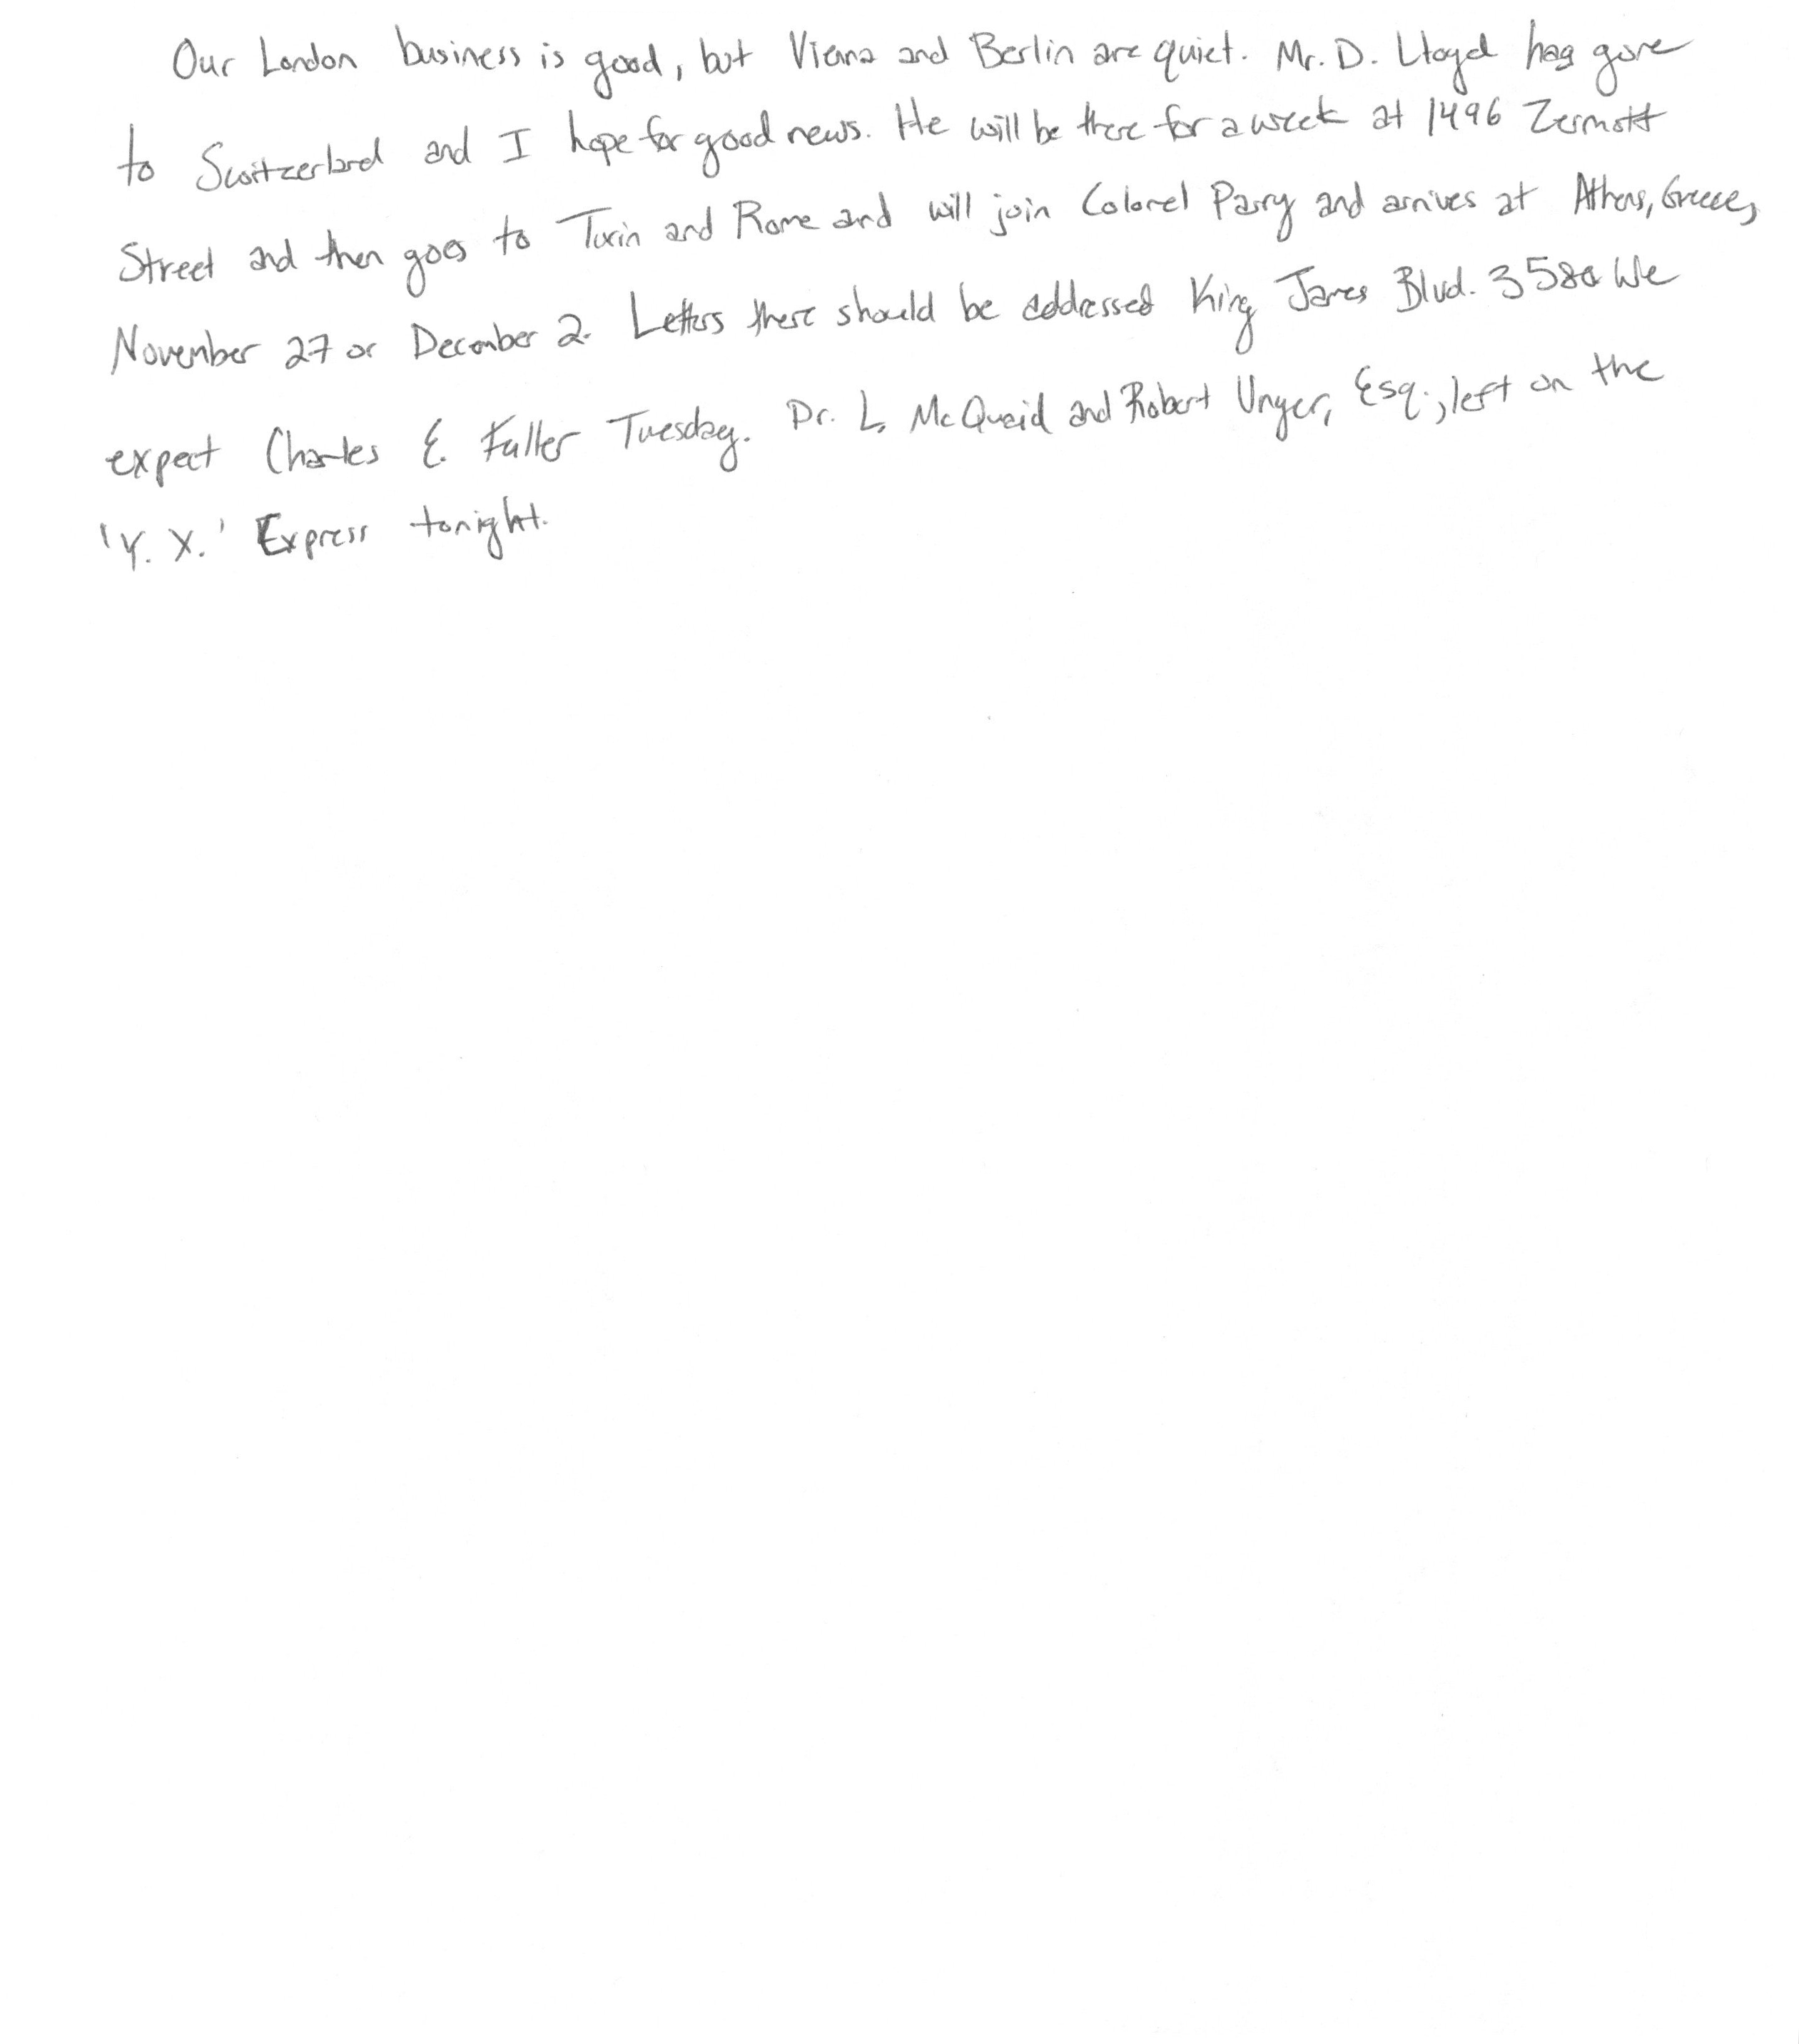 Our London business is good, but Vienna and Berlin are quiet. Mr. D. Lloyd has gone
to Switzerland and I hope for good news. He will be there for a week at 1496 Zermott
Street and then goes to Turin and Rome and will join Colonel Parry and arrives at Athens, Greece,
November 27 or December 2. Letters there should be addressed King James Blvd. 3580 We
expect Charles E. Fuller Tuesday. Dr. L. McQuaid and Robert Unger, Esq., left on the
'Y. X.' Express tonight.